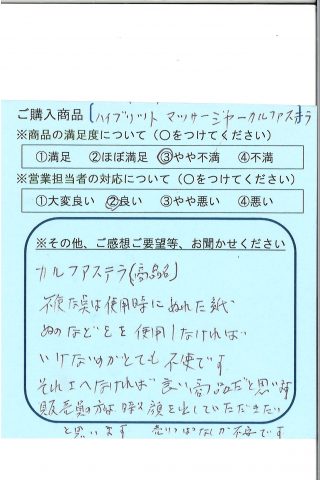 ご購入商品 [ハイブリット マッサージャーカルファステラ
※商品の満足度について（○をつけてください）
①満足 ②ほぼ満足 ③やや不満 ④不満
※営業担当者の対応について（○をつけてください）
①大変良い ②良い ③やや悪い ④悪い
※その他、ご感想ご要望等、お聞かせください
カルファステラ(商品名)
不便な点は使用時にぬれた紙
ぬのなどを使用しなければ
いけないのがとても不便です
それさえなければ良い商品だと思います
販売員の方は時々顔を出していただきたい
と思います 売りっぱなしが不安です